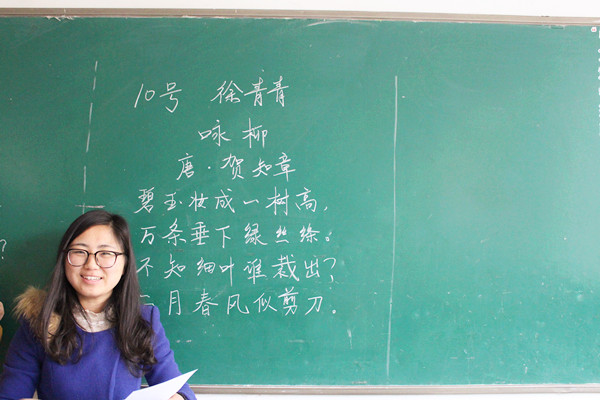 10号 徐青青
咏柳
唐·贺知章
碧玉妆成一树高,
万条垂下绿丝绦。
不知细叶谁裁出?
二月春风似剪刀.
?